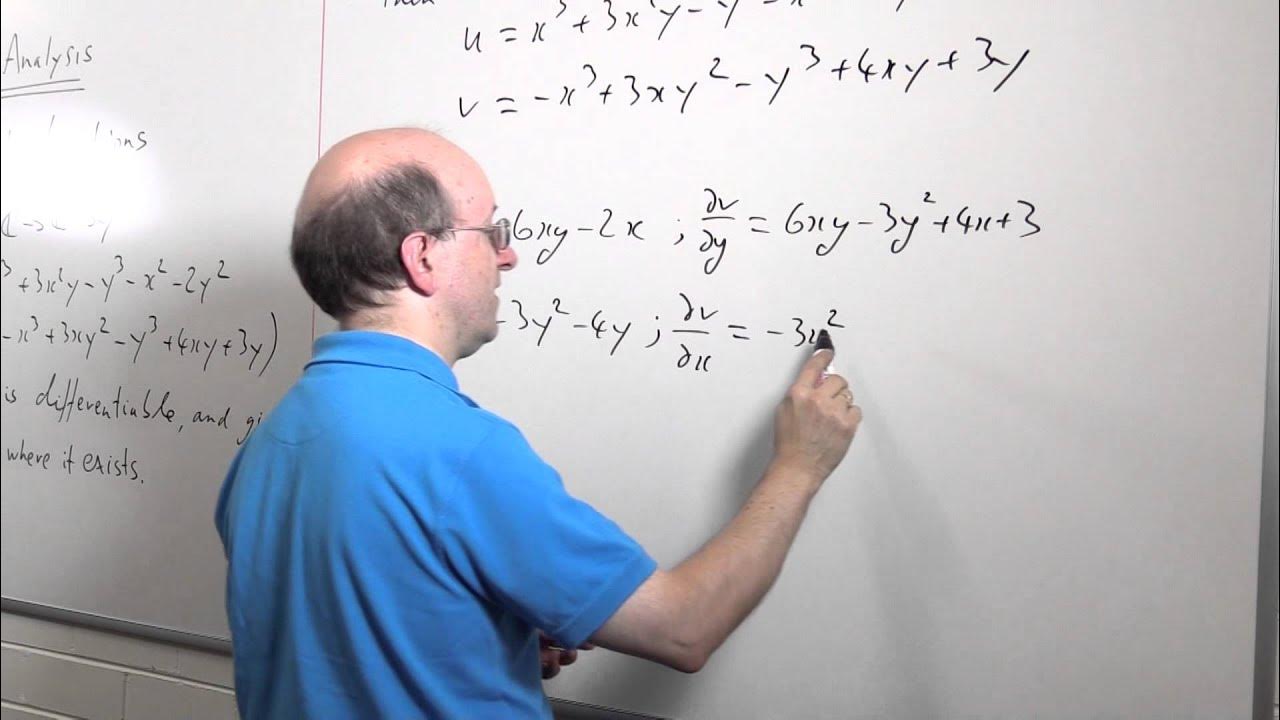 Analysis
³ + 3x²y - y³ - x² - 2y²
- x³ + 3xy² - y³ + 4xy + 3y)
is differentiable, and
where it exists.
Then
u = x³ + 3x²y - y³ - x²
v = -x³ + 3xy² - y³ + 4xy + 3y
6xy - 2x ; ∂v/∂y = 6xy - 3y² + 4x + 3
3y² - 4y ; ∂v/∂x = -3x²